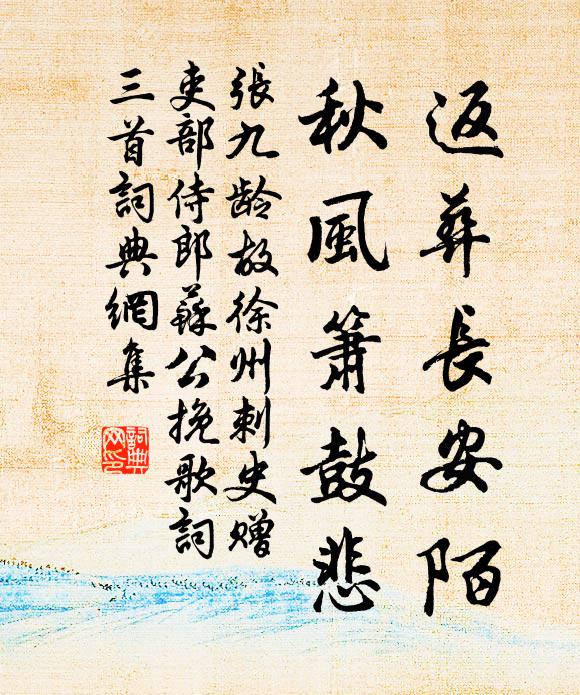 返葬長安陌
秋風簫鼓悲
張九齡故徐州刺史赠
吏部侍郎蘇公挽歌詞
三首詞典網集
詞典
网印